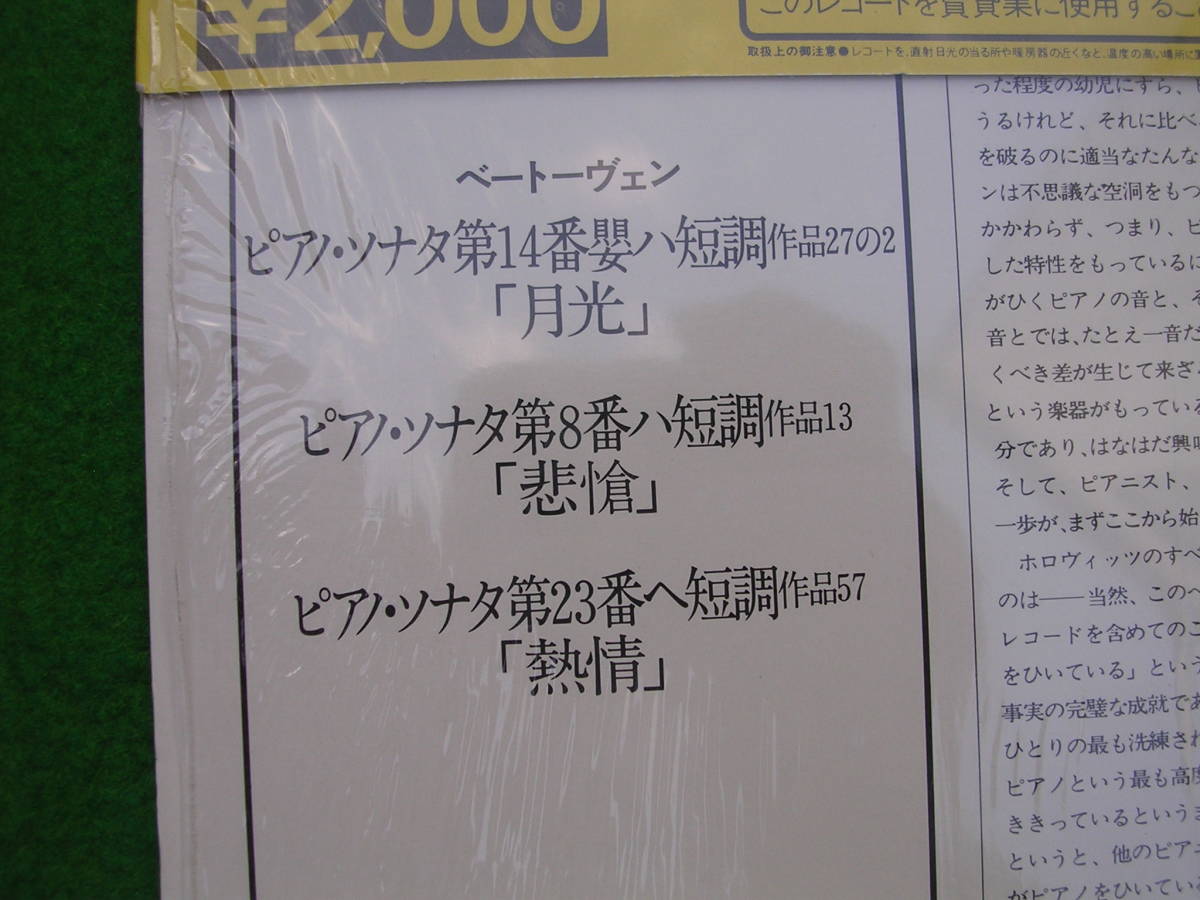 ¥2,000
このレコードを賃貸業に使用するこ
取扱上の御注意●レコードを、直射日光の当る所や暖房器の近くなど、温度の高い場所に
ベートーヴェン
ピアノ・ソナタ第14番嬰ハ短調作品27の2
「月光」
ピアノ・ソナタ第8番ハ短調作品13
「悲愴」
ピアノ・ソナタ第23番ヘ短調作品57
「熱情」
った程度の幼児にすら、
うるけれど、それに比べ
を破るのに適当なたんな
ンは不思議な空洞をもつ
かかわらず、つまり、ピ
した特性をもっているに
がひくピアノの音と、そ
音とでは、たとえ一音だ
くべき差が生じて来ざ
という楽器がもっている
分であり、はなはだ興味
そして、ピアニスト、
一歩が、まずここから始
ホロヴィッツのすべ
のは──当然、このベ
レコードを含めてのこ
をひいている」という
事実の完璧な成就であ
ひとりの最も洗練され
ピアノという最も高度
ききっているというま
というと、他のピアニ
がピアノをひいてい